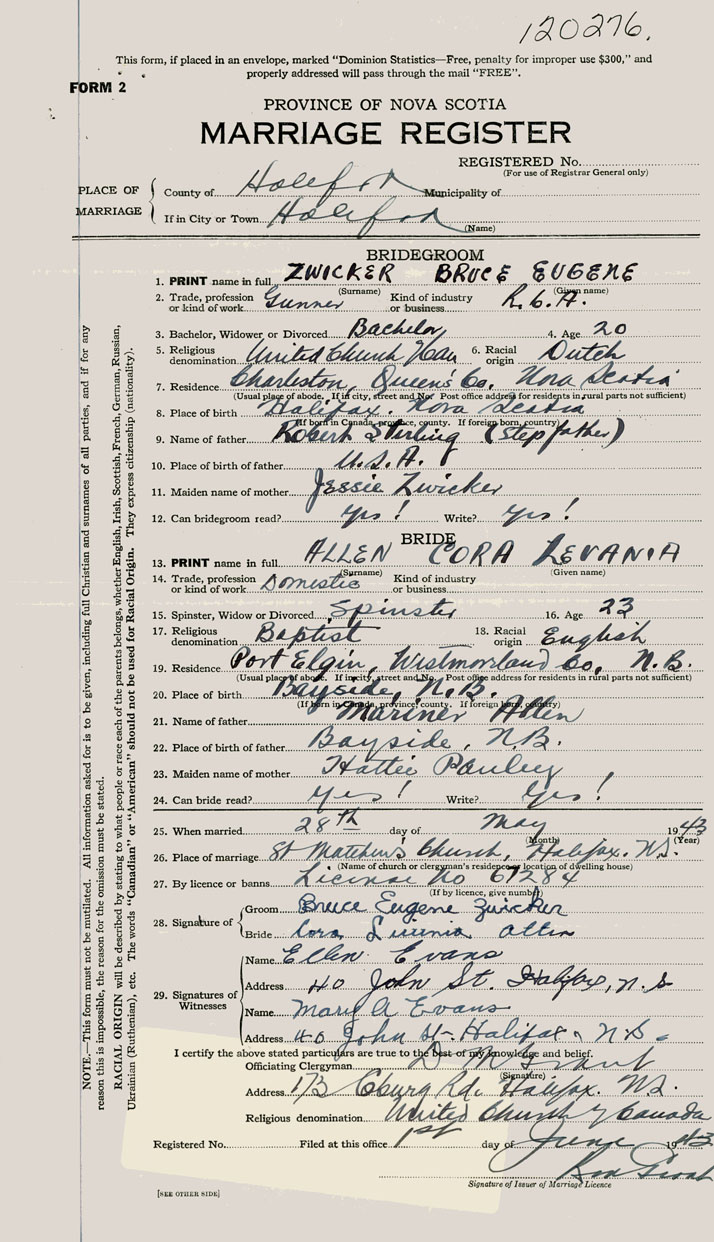 120276.
This form, if placed in an envelope, marked "Dominion Statistics—Free, penalty for improper use $300," and
properly addressed will pass through the mail "FREE".
FORM 2
PROVINCE OF NOVA SCOTIA
MARRIAGE REGISTER
REGISTERED No.
(For use of Registrar General only)
PLACE OF MARRIAGE
County of Halifax Municipality of
If in City or Town Halifax
(Name)
BRIDEGROOM
1. PRINT name in full ZWICKER BRUCE EUGENE
(Surname) (Given name)
2. Trade, profession or kind of work Gunner Kind of industry or business R.C.A.
3. Bachelor, Widower or Divorced Bachelor 4. Age 20
5. Religious denomination United Church Can 6. Racial origin Dutch
7. Residence Charleston, Queen's Co, Nova Scotia
(Usual place of abode. If in city, street and No. Post office address for residents in rural parts not sufficient)
8. Place of birth Halifax. Nova Scotia
(If born in Canada, province, county. If foreign born, country)
9. Name of father Robert Stirling (Step father)
10. Place of birth of father U.S.A.
11. Maiden name of mother Jessie Zwicker
12. Can bridegroom read? Yes! Write? Yes!
BRIDE
13. PRINT name in full ALLEN CORA LEVANIA
(Surname) (Given name)
14. Trade, profession or kind of work Domestic Kind of industry or business
15. Spinster, Widow or Divorced Spinster 16. Age 23
17. Religious denomination Baptist 18. Racial origin English
19. Residence Port Elgin, Westmorland Co, N.B.
(Usual place of abode. If in city, street and No. Post office address for residents in rural parts not sufficient)
20. Place of birth Bayside, N.B.
(If born in Canada, province, county. If foreign born, country)
21. Name of father Mariner Allen
22. Place of birth of father Bayside, N.B.
23. Maiden name of mother Hattie Pauley
24. Can bride read? Yes! Write? Yes!
25. When married 28th day of May 1943
(Month) (Year)
26. Place of marriage St Matthew's Church, Halifax. N.S.
(Name of church or clergyman's residence or location of dwelling house)
27. By licence or banns License No 67284
(If by licence, give number)
28. Signature of
Groom Bruce Eugene Zwicker
Bride Cora Livinia Allen
29. Signatures of Witnesses
Name Ellen Evans
Address 40 John St. Halifax, N.S
Name Mary A Evans
Address 40 John St. Halifax. N.S.
I certify the above stated particulars are true to the best of my knowledge and belief.
Officiating Clergyman D. M Grant
(Signature)
Address 173 Coburg Rd. Halifax. N.S.
Religious denomination United Church of Canada
Registered No. Filed at this office 1st day of June 1943
Signature of Issuer of Marriage Licence
[SEE OTHER SIDE]
NOTE.—This form must not be mutilated. All information asked for is to be given, including full Christian and surnames of all parties, and if for any
reason this is impossible, the reason for the omission must be stated.
RACIAL ORIGIN will be described by stating to what people or race each of the parents belongs, whether English, Irish, Scottish, French, German, Russian,
Ukrainian (Ruthenian), etc. The words "Canadian" or "American" should not be used for Racial Origin. They express citizenship (nationality).